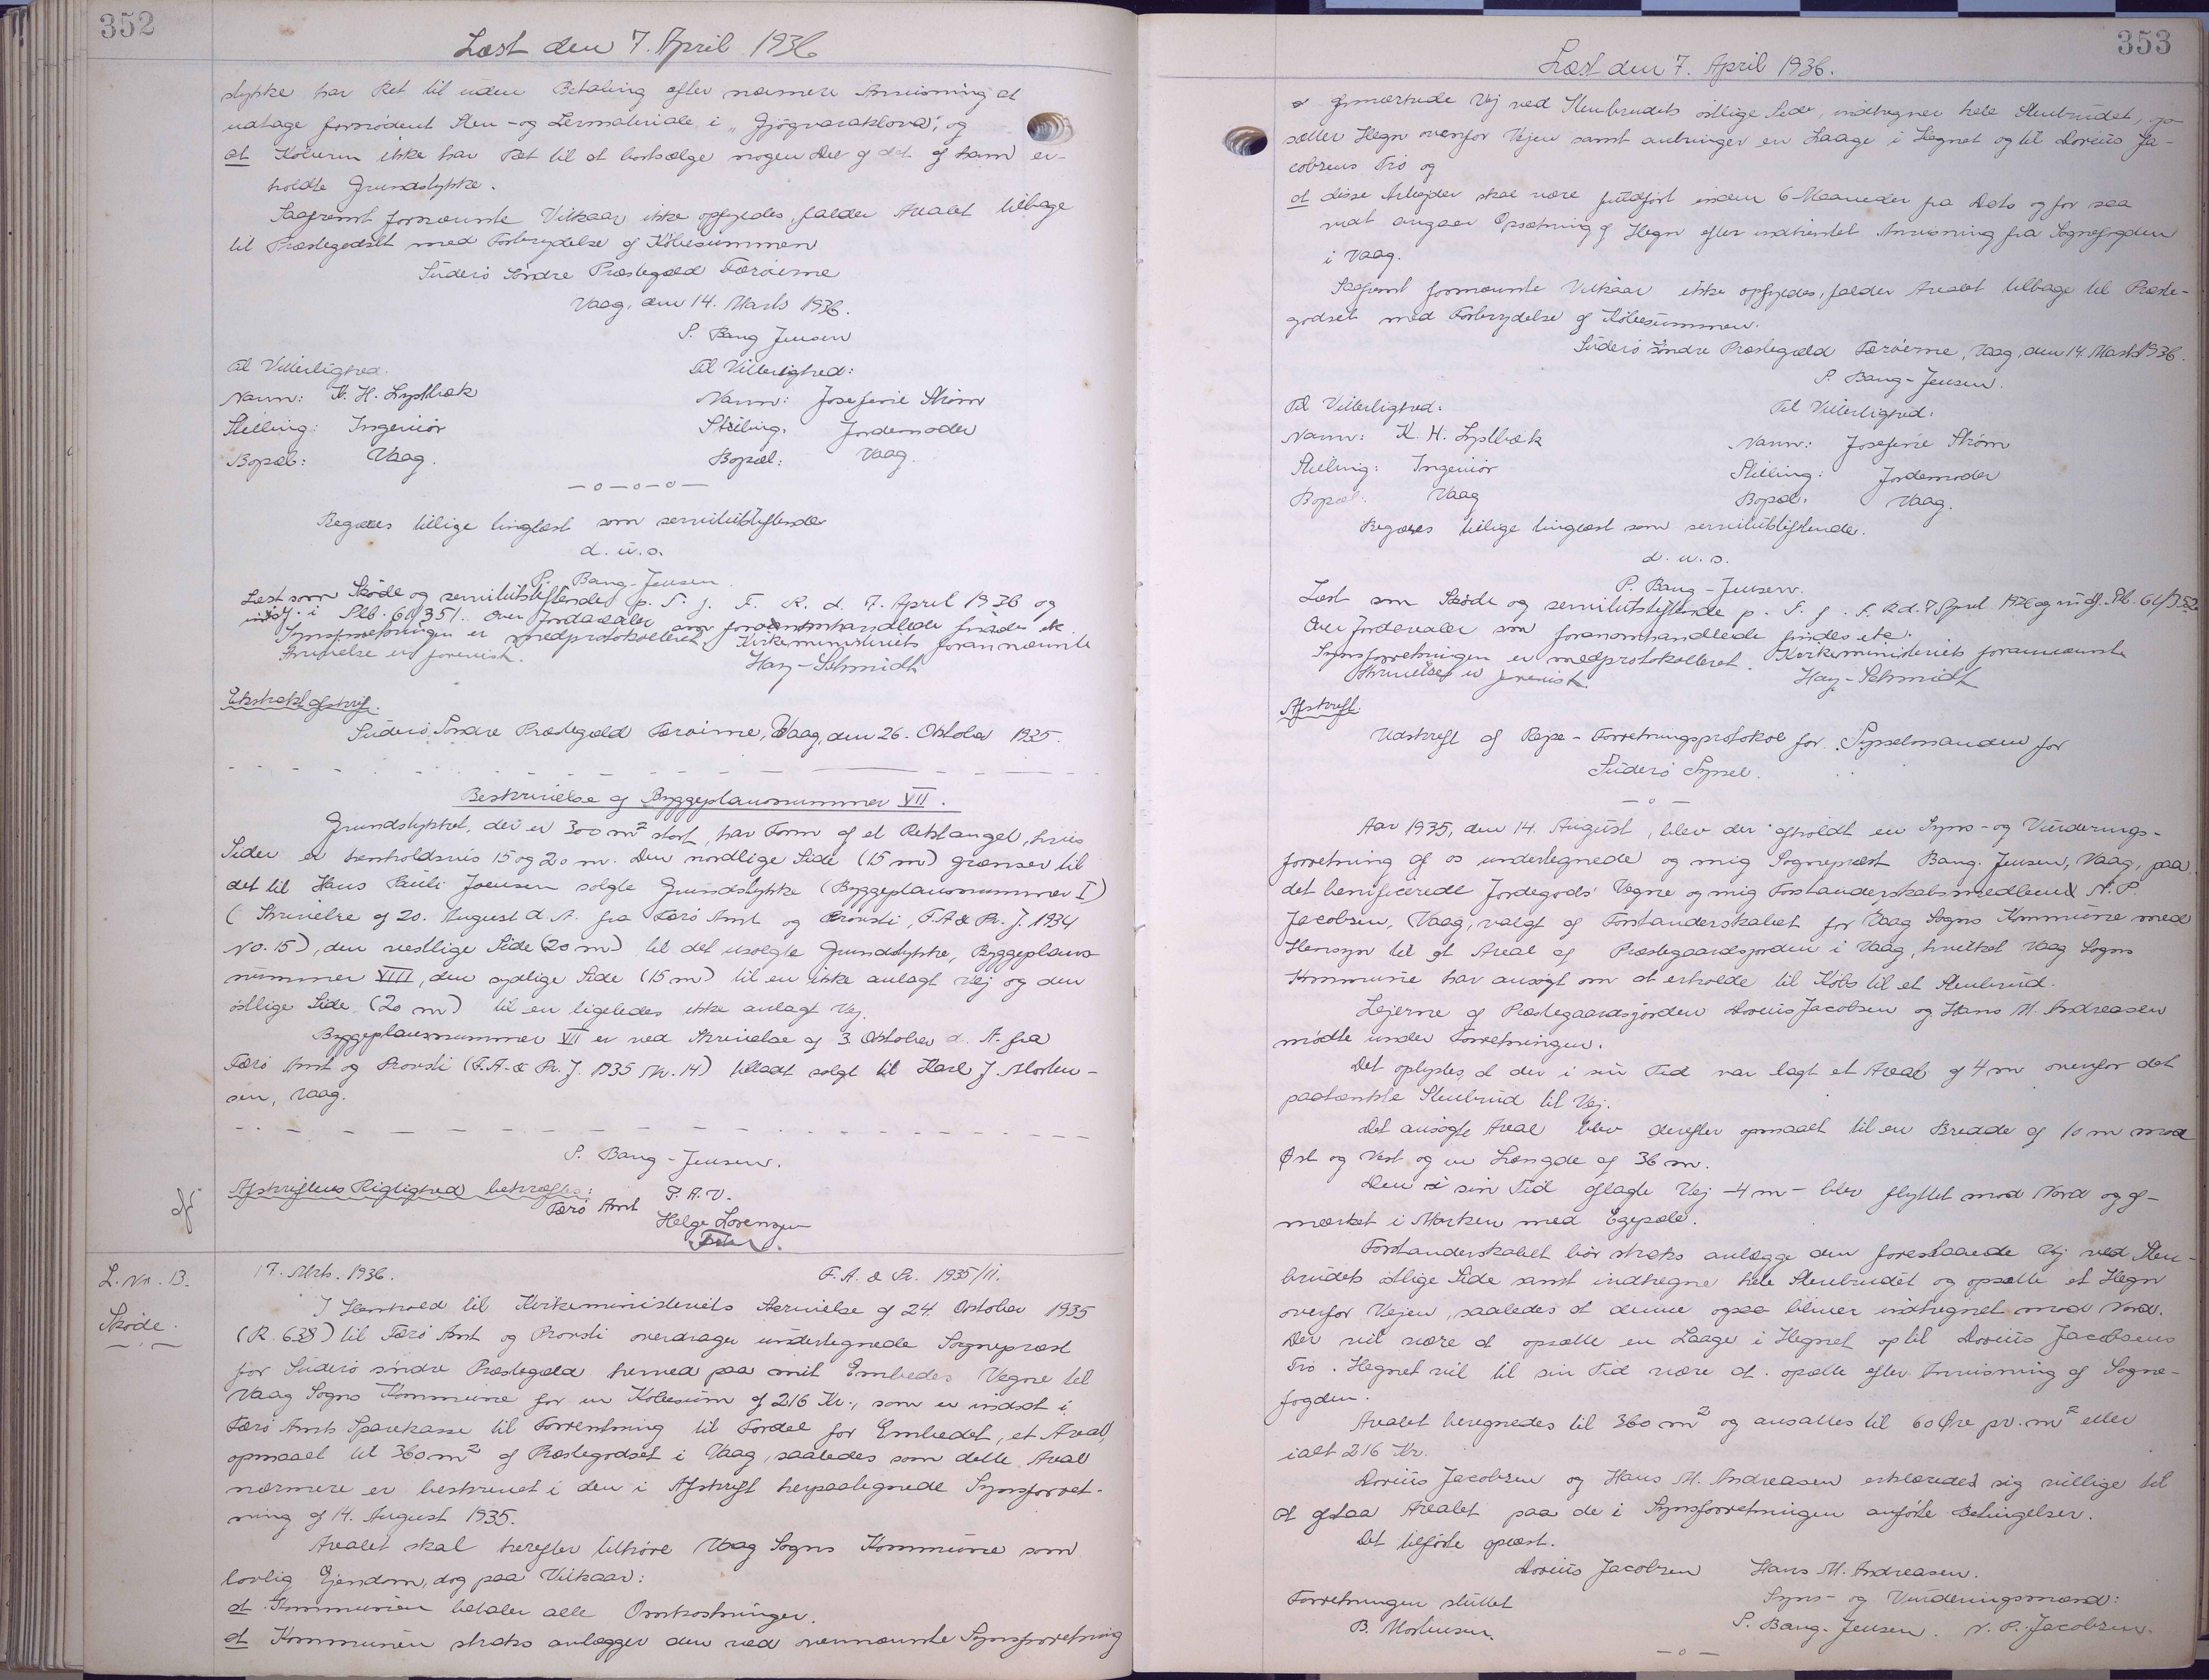 352
Læst den 7. April 1936
stykke har Ret til uden Betaling efter nærmere Anvisning at
udtage fornødent Sten- og Lermateriale i „Gjógvaraklova“, og
at Køberen ikke har Ret til at bortsælge nogen Del af det af ham er-
holdte Grundstykke.
Saafremt fornævnte Vilkaar ikke opfyldes, falder Arealet tilbage
til Præstegodset med Forbrydelse af Købesummen
Suderø Søndre Præstegæld Færøerne
Vaag, den 14. Marts 1936.
P. Bang Jensen
Til Vitterlighed:
Navn: K. H. Lystbæk
Stilling: Ingeniør
Bopæl: Vaag.
Til Vitterlighed:
Navn: Josefine Strøm
Stilling: Jordemoder
Bopæl: Vaag.
—o—o—o—
Begæres tillige tinglæst som servitutstiftende
d. u. s.
P. Bang-Jensen.
Læst som Skøde og servitutstiftende p. T. f. F. R. d. 7. April 1936 og
indf. i Plb. 6b/351. Over Jordarealer som foranomhandlede findes ek.
Synsforretningen er medprotokolleret. Kirkeministeriets forannævnte
Skrivelse er forevist.
Hay-Schmidt
Ekstraktafskrift.
Suderø Søndre Præstegæld Færøerne, Vaag, den 26. Oktober 1935.
Beskrivelse af Byggeplansnummer VII.
Grundstykket, der er 300 m² stort, har Form af et Rektangel, hvis
Sider er henholdsvis 15 og 20 m. Den nordlige Side (15 m) grænser til
det til Hans Pauli Joensen solgte Grundstykke (Byggeplansnummer I)
(Skrivelse af 20. August d. A. fra Færø Amt og Provsti, F.A & Pr. J. 1934
No. 15), den vestlige Side (20 m) til det usolgte Grundstykke, Byggeplans-
nummer VIII, den sydlige Side (15 m) til en ikke anlagt Vej og den
østlige Side (20 m) til en ligeledes ikke anlagt Vej.
Byggeplansnummer VII er ved Skrivelse af 3. Oktober d. A. fra
Færø Amt og Provsti (F.A. & Pr. J. 1935 Nr. 14) tilladt solgt til Karl J. Morten-
sen, Vaag.
P. Bang-Jensen.
Afskriftens Rigtighed bekræftes:
Færø Amt
P. A. V.
Helge Lorenzen
L. Nr. 13.
Skøde.
17. Mrts. 1936.
F. A. & Pr. 1935/11.
I Henhold til Kirkeministeriets Skrivelse af 24. Oktober 1935
(R. 638) til Færø Amt og Provsti overdrager undertegnede Sognepræst
for Suderø søndre Præstegæld herved paa mit Embedes Vegne til
Vaag Sogns Kommune for en Købesum af 216 Kr., som er indsat i
Færø Amts Sparekasse til Forrentning til Fordel for Embedet, et Areal,
opmaalt til 360 m² af Præstegodset i Vaag, saaledes som dette Areal
nærmere er beskrevet i den i Afskrift herpaategnede Synsforret-
ning af 14. August 1935.
Arealet skal herefter tilhøre Vaag Sogns Kommune som
lovlig Ejendom, dog paa Vilkaar:
at Kommunen betaler alle Omkostninger.
at Kommunen straks anlægger den ved ovennævnte Synsforretning
353
Læst den 7. April 1936.
afmærkede Vej ved Stenbrudets østlige Side, indhegner hele Stenbrudet, op-
sætter Hegn ovenfor Vejen samt anbringer en Laage i Hegnet op til Dorius Ja-
cobsens Trø og
at disse Arbejder skal være fuldført inden 6 Maaneder fra Dato og for saa
vidt angaar Opsætning af Hegn efter indhentet Anvisning fra Sognefogden
i Vaag.
Saafremt fornævnte Vilkaar ikke opfyldes, falder Arealet tilbage til Præste-
godset med Forbrydelse af Købesummen.
Suderø Søndre Præstegæld Færøerne, Vaag, den 14. Marts 1936.
P. Bang-Jensen.
Til Vitterlighed:
Navn: K. H. Lystbæk
Stilling: Ingeniør
Bopæl: Vaag
Til Vitterlighed:
Navn: Josefine Strøm
Stilling: Jordemoder
Bopæl: Vaag.
Begæres tillige tinglæst som servitutstiftende.
d. u. s.
P. Bang-Jensen.
Læst som Skøde og servitutstiftende p. T. f. F. R. d. 7 April 1936 og indf. Plb. 6b/352
Over Jordarealer som foranomhandlede findes ek.
Synsforretningen er medprotokolleret. Kirkeministeriets forannævnte
Skrivelse er forevist.
Hay-Schmidt
Afskrift.
Udskrift af Rejse-Forretningsprotokol for Sysselmanden for
Suderø Syssel.
—o—
Aar 1935, den 14. August, blev der afholdt en Syns- og Vurderings-
forretning af os undertegnede og mig Sognepræst Bang-Jensen, Vaag, paa
det beneficerede Jordegods' Vegne og mig Forstanderskabsmedlem N. P.
Jacobsen, Vaag, valgt af Forstanderskabet for Vaag Sogns Kommune med
Hensyn til et Areal af Præstegaardsjorden i Vaag, hvilket Vaag Sogns
Kommune har ansøgt om at erholde til Købs til et Stenbrud.
Lejerne af Præstegaardsjorden Dorius Jacobsen og Hans M. Andreasen
mødte under Forretningen.
Det oplystes, at der i sin Tid var lagt et Areal af 4 m ovenfor det
paatænkte Stenbrud til Vej.
Det ansøgte Areal blev derefter opmaalt til en Bredde af 10 m mod
Øst og Vest og en Længde af 36 m.
Den i sin Tid aflagte Vej – 4 m – blev flyttet mod Nord og af-
mærket i Marken med Egepæle.
Forstanderskabet bør straks anlægge den forestaaende Vej ved Sten-
brudets østlige Side samt indhegne hele Stenbrudet og opsætte et Hegn
ovenfor Vejen, saaledes at denne ogsaa bliver indhegnet mod Nord.
Der vil være at opsætte en Laage i Hegnet op til Dorius Jacobsens
Trø. Hegnet vil til sin Tid være at opsætte efter Anvisning af Sogne-
fogden.
Arealet beregnedes til 360 m² og ansattes til 60 Øre pr. m² eller
ialt 216 Kr.
Dorius Jacobsen og Hans M. Andreasen erklærede sig villige til
at afstaa Arealet paa de i Synsforretningen anførte Betingelser.
Det tilførte oplæst.
Dorius Jacobsen Hans M. Andreasen.
Forretningen sluttet
B. Mortensen.
Syns- og Vurderingsmænd:
P. Bang-Jensen. N. P. Jacobsen.
—o—